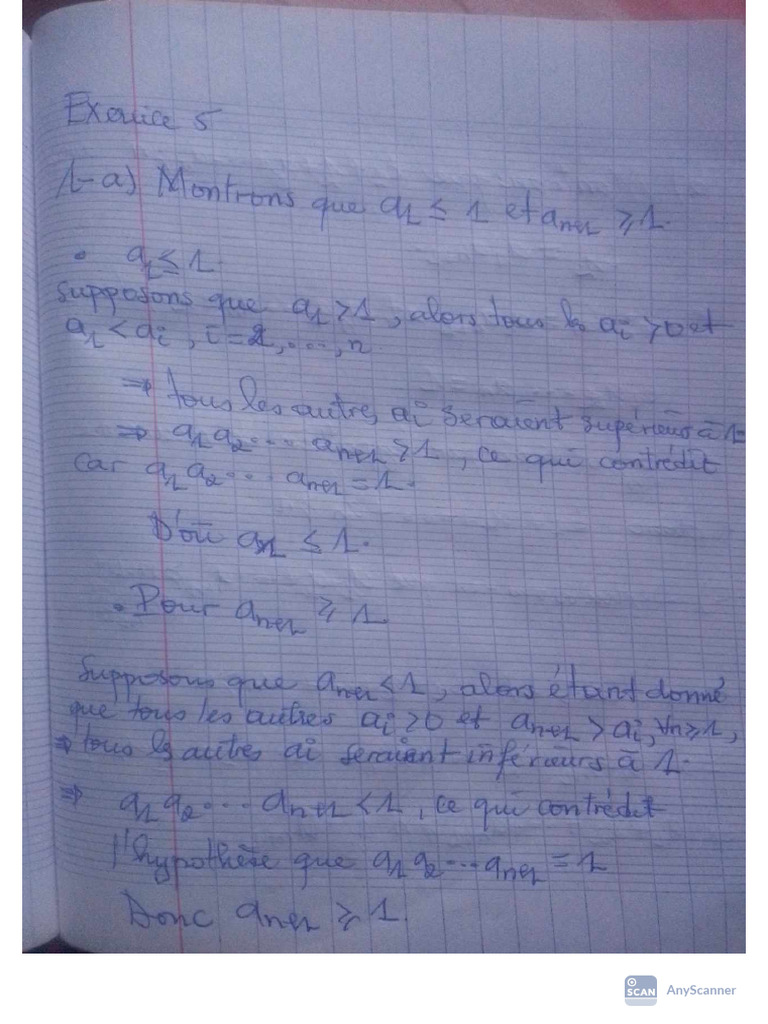 Exercice 5
1-a) Montrons que a₁ ≤ 1 et aₙ₊₁ ≥ 1.
• a₁ ≤ 1.
Supposons que a₁ > 1, alors tous les ai > 0 et
a₁ < ai, i = 2, ..., n
⇒ tous les autres ai seraient supérieurs à 1
⇒ a₁ a₂ ... aₙ₊₁ > 1, ce qui contredit
car a₁ a₂ ... aₙ₊₁ = 1.
D'où a₁ ≤ 1.
• Pour aₙ₊₁ ≥ 1
Supposons que aₙ₊₁ < 1, alors étant donné
que tous les autres ai > 0 et aₙ₊₁ > ai, ∀n ≥ 1,
⇒ tous les autres ai seraient inférieurs à 1.
⇒ a₁ a₂ ... aₙ₊₁ < 1, ce qui contredit
l'hypothèse que a₁ a₂ ... aₙ₊₁ = 1
Donc aₙ₊₁ ≥ 1.
SCAN AnyScanner